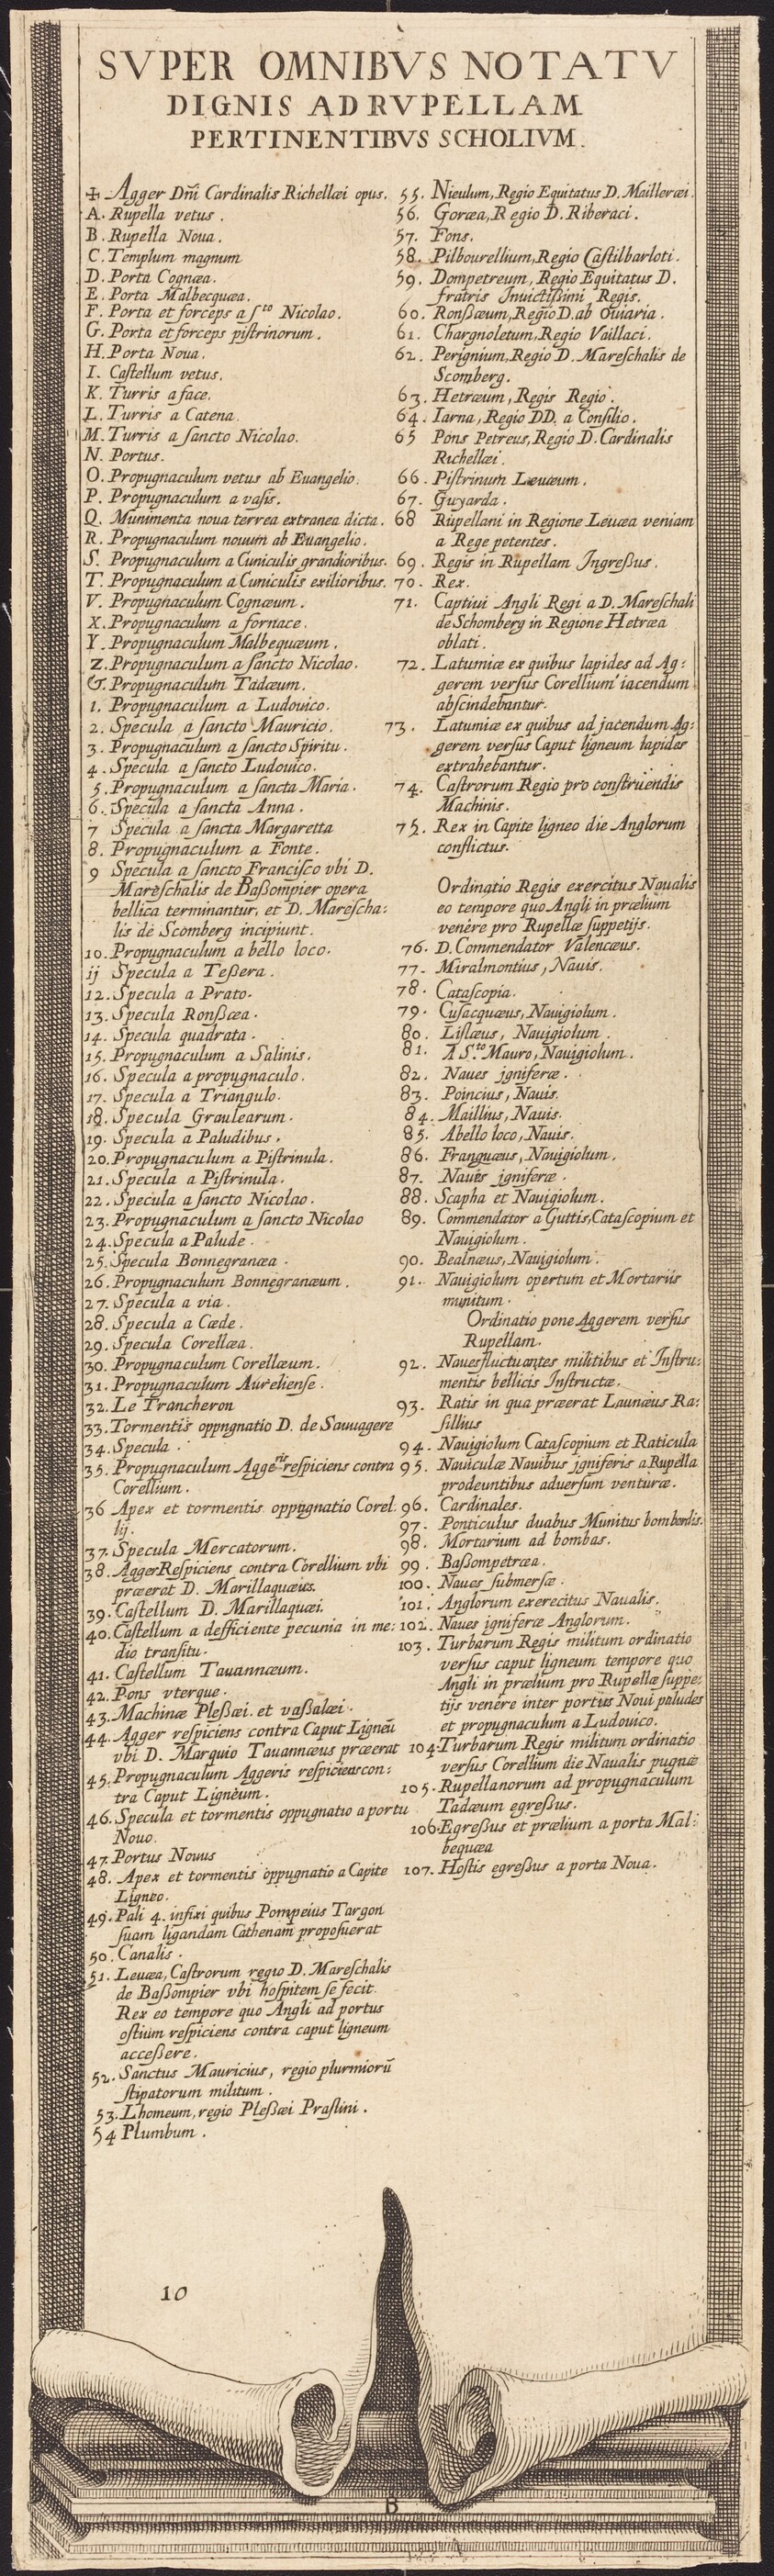 SVPER OMNIBVS NOTATV
DIGNIS AD RVPELLAM
PERTINENTIBVS SCHOLIVM.
✠ Agger Dñi Cardinalis Richellæi opus.
A. Rupella vetus.
B. Rupella Noua.
C. Templum magnum
D. Porta Cognæa.
E. Porta Malbecquæa.
F. Porta et forceps a s.to Nicolao.
G. Porta et forceps pistrinorum.
H. Porta Noua.
I. Castellum vetus.
K. Turris a face.
L. Turris a Catena.
M. Turris a sancto Nicolao.
N. Portus.
O. Propugnaculum vetus ab Euangelio.
P. Propugnaculum a vasis.
Q. Munimenta noua terrea extranea dicta.
R. Propugnaculum nouum ab Euangelio.
S. Propugnaculum a Cuniculis grandioribus.
T. Propugnaculum a Cuniculis exilioribus.
V. Propugnaculum Cognæum.
X. Propugnaculum a fornace.
Y. Propugnaculum Malbequæum.
Z. Propugnaculum a sancto Nicolao.
&. Propugnaculum Tadæum.
1. Propugnaculum a Ludouico.
2. Specula a sancto Mauricio.
3. Propugnaculum a sancto Spiritu.
4. Specula a sancto Ludouico.
5. Propugnaculum a sancta Maria.
6. Specula a sancta Anna.
7 Specula a sancta Margaretta
8. Propugnaculum a Fonte.
9 Specula a sancto Francisco vbi D.
Mareschalis de Baßompier opera
bellica terminantur, et D. Marescha:
lis de Scomberg incipiunt.
10. Propugnaculum a bello loco.
ij Specula a Teßera.
12. Specula a Prato.
13. Specula Ronßæa.
14. Specula quadrata.
15. Propugnaculum a Salinis.
16. Specula a propugnaculo.
17. Specula a Triangulo.
18. Specula Graulearum.
19. Specula a Paludibus.
20. Propugnaculum a Pistrinula.
21. Specula a Pistrinula.
22. Specula a sancto Nicolao.
23. Propugnaculum a sancto Nicolao
24. Specula a Palude.
25. Specula Bonnegranæa.
26. Propugnaculum Bonnegranæum.
27. Specula a via.
28. Specula a Cæde.
29. Specula Corellæa.
30. Propugnaculum Corellæum.
31. Propugnaculum Aureliense.
32. Le Trancheron
33. Tormentis oppngnatio D. de Sauuagere
34. Specula.
35. Propugnaculum Aggeris respiciens contra
Corellium.
36 Apex et tormentis oppugnatio Corel:
lij.
37. Specula Mercatorum.
38. Agger Respiciens contra Corellium vbi
præerat D. Marillaquæus.
39. Castellum D. Marillaquæi.
40. Castellum a defficiente pecunia in me:
dio transitu.
41. Castellum Tauannæum.
42. Pons vterque.
43. Machinæ Pleßæi. et vaßalæi.
44. Agger respiciens contra Caput Ligneũ
vbi D. Marquio Tauannæus præerat
45. Propugnaculum Aggeris respiciens con:
tra Caput Ligneum.
46. Specula et tormentis oppugnatio a portu
Nouo.
47. Portus Nouus
48. Apex et tormentis oppugnatio a Capite
Ligneo.
49. Pali 4. infixi quibus Pompeius Targon
suam ligandam Cathenam proposuerat
50. Canalis.
51. Leuæa, Castrorum regio D. Mareschalis
de Baßompier vbi hospitem se fecit
Rex eo tempore quo Angli ad portus
ostium respiciens contra caput ligneum
acceßere.
52. Sanctus Mauricius, regio plurmiorũ
stipatorum militum.
53. Lhomeum, regio Pleßæi Praslini.
54 Plumbum.
55. Nieulum, Regio Equitatus D. Mailleræi.
56. Goræa, Regio D. Riberaci.
57. Fons.
58. Pilbourellium, Regio Castilbarloti.
59. Dompetreum, Regio Equitatus D.
fratris Inuictissimi Regis.
60. Ronßæum, Regio D. ab Ouiaria.
61. Chargnoletum, Regio Vaillaci.
62. Perignium, Regio D. Mareschalis de
Scomberg.
63. Hetræum, Regis Regio.
64. Iarna, Regio DD. a Consilio.
65 Pons Petreus, Regio D. Cardinalis
Richellæi.
66. Pistrinum Leuæum.
67. Guyarda.
68 Rupellani in Regione Leuæa veniam
a Rege petentes.
69. Regis in Rupellam Ingreßus.
70. Rex.
71. Captiui Angli Regi a D. Mareschali
de Schomberg in Regione Hetræa
oblati.
72. Latumiæ ex quibus lapides ad Ag:
gerem versus Corellium iacendum
abscindebantur.
73. Latumiæ ex quibus ad jacendum Ag:
gerem versus Caput ligneum lapides
extrahebantur.
74. Castrorum Regio pro construendis
Machinis.
75. Rex in Capite ligneo die Anglorum
conflictus.
Ordinatio Regis exercitus Naualis
eo tempore quo Angli in prælium
venere pro Rupellæ suppetijs.
76. D. Commendator Valencæus.
77. Miralmontius, Nauis.
78. Catascopia.
79. Cusacquæus, Nauigiolum.
80. Lislæus, Nauigiolum.
81. A S.to Mauro, Nauigiolum.
82. Naues jgniferæ.
83. Poincius, Nauis.
84. Maillius, Nauis.
85. Abello loco, Nauis.
86. Franquæus, Nauigiolum.
87. Naues jgniferæ.
88. Scapha et Nauigiolum.
89. Commendator a Guttis, Catascopium et
Nauigiolum.
90. Bealnæus, Nauigiolum.
91. Nauigiolum opertum et Mortariis
munitum.
Ordinatio pone Aggerem versus
Rupellam.
92. Naues fluctuantes militibus et Instru:
mentis bellicis Instructæ.
93. Ratis in qua præerat Launæus Ra:
sillius
94. Nauigiolum Catascopium et Raticula
95. Nauiculæ Nauibus jgniferis a Rupella
prodeuntibus aduersum venturæ.
96. Cardinales.
97. Ponticulus duabus Munitus bombardis.
98. Mortarium ad bombas.
99. Baßompetræa.
100. Naues submersæ.
101. Anglorum exerecitus Naualis.
102. Naues igniferæ Anglorum.
103. Turbarum Regis militum ordinatio
versus caput ligneum tempore quo
Angli in prælium pro Rupellæ suppe:
tijs venere inter portus Noui paludes
et propugnaculum a Ludouico.
104. Turbarum Regis militum ordinatio
versus Corellium die Naualis pugnæ
105. Rupellanorum ad propugnaculum
Tadæum egreßus.
106. Egreßus et prælium a porta Mal:
bequæa
107. Hostis egreßus a porta Noua.
10
B